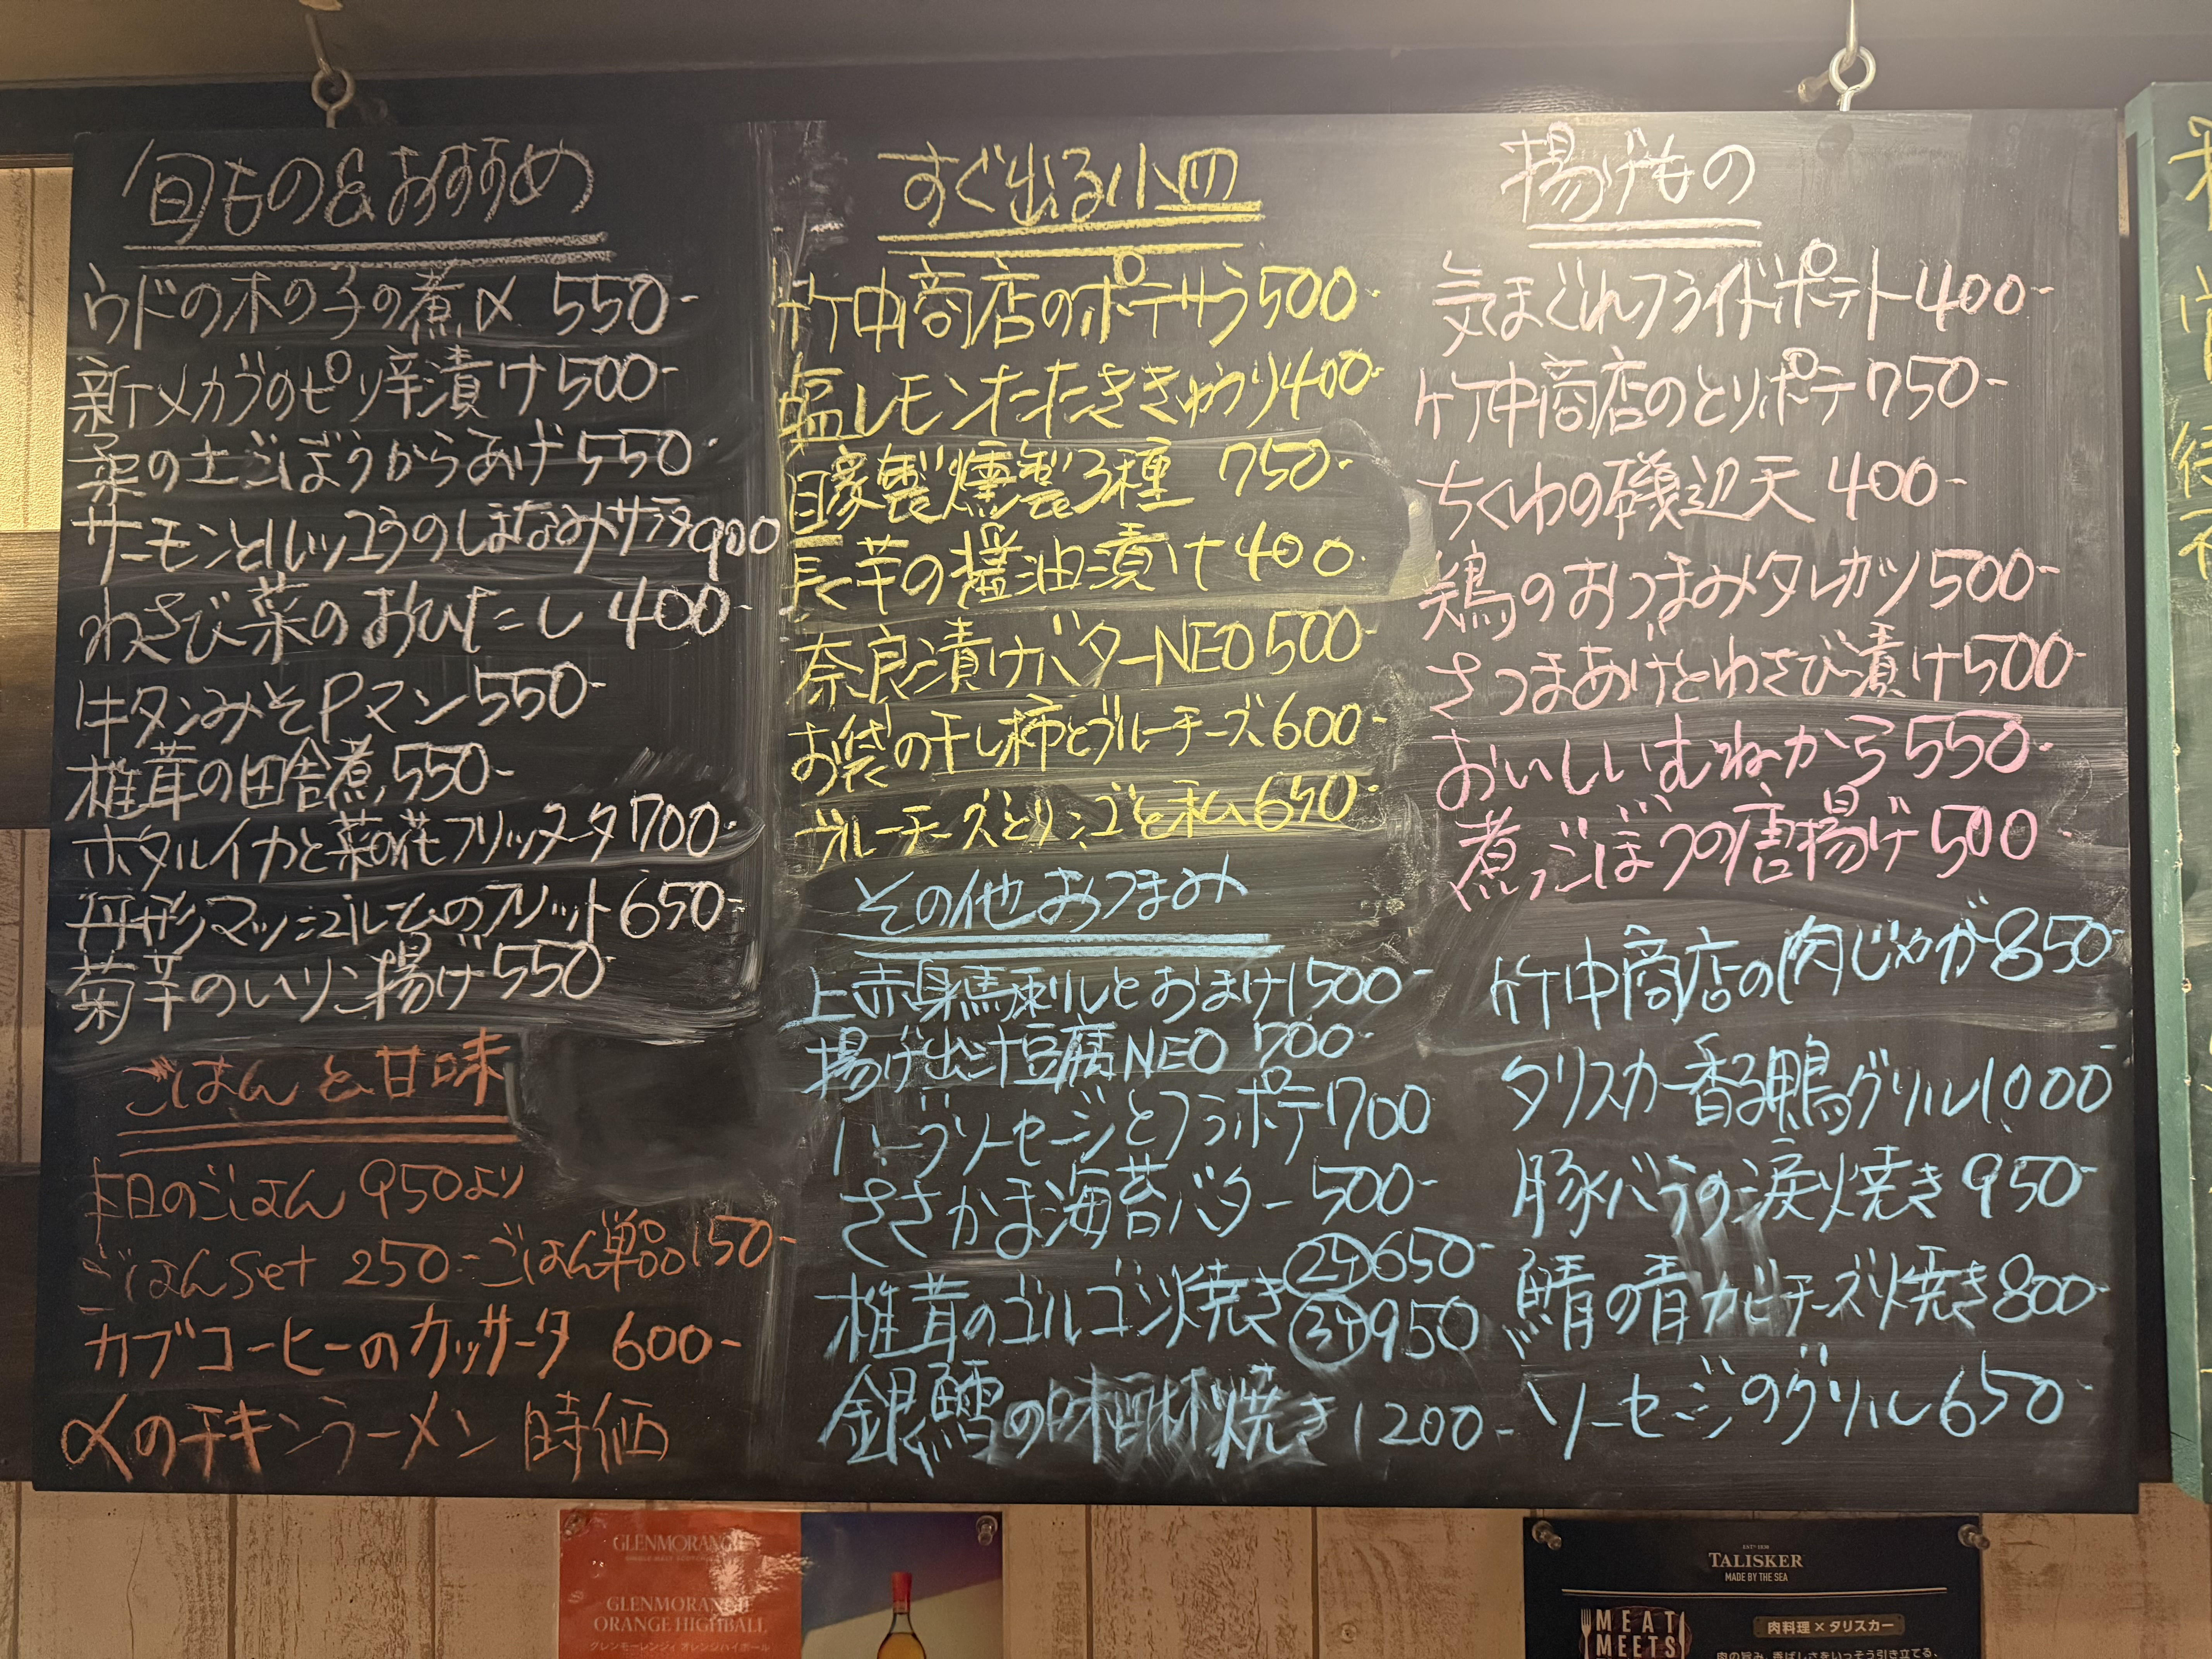 旬もの&おすすめ
ウドの木の子の煮〆 550-
新メカブのピリ辛漬け500-
菜の土ごぼうからあげ550-
サーモンとルッコラのしぼなみサラダ900
わさび菜のおひたし 400-
牛タンみそPマン550-
椎茸の田舎煮550-
ホタルイカと菜の花フリッタータ700-
丹形マッシュルームのフリット650-
菊芋のいりこ揚げ550-
ごはんと甘味
本日のごはん 950より
ごはんSet 250-ごはん単品150-
カブコーヒーのカッサータ 600-
〆のチキンラーメン 時価
すぐ出る小皿
竹中商店のポテサラ500-
塩レモンたたききゅうり400-
自家製燻製3種 750-
長芋の醤油漬け400-
奈良漬けバターNEO500-
お袋の干し柿とブルーチーズ600-
ブルーチーズとリンゴと私650-
その他おつまみ
上赤身馬刺しとおまけ1500-
揚げ出汁豆腐NEO 700-
ハーブソーセージとフラポテ700
ささかま海苔バター500-
椎茸のゴルゴン焼き②4650-
③4950
銀鱈の味醂焼き1200-
揚げもの
気まぐれフライドポテト400-
竹中商店のとりポテ750-
ちくわの磯辺天 400-
鶏のおつまみタレカツ500-
さつまあげとわさび漬け500-
おいしいむねから550-
煮ごぼうの唐揚げ500-
竹中商店の肉じゃが850-
タリスカー香る鴨グリル1000
豚バラの涙焼き950-
鯖の青カビチーズ焼き800-
ソーセージのグリル650-
GLENMORANGIE
SINGLE MALT SCOTCH
GLENMORANGIE
ORANGE HIGHBALL
グレンモーレンジィ オレンジハイボール
EST 1830
TALISKER
MADE BY THE SEA
MEAT
MEETS
肉料理×タリスカー
肉の旨み、香ばしさをいっそう引き立てる、